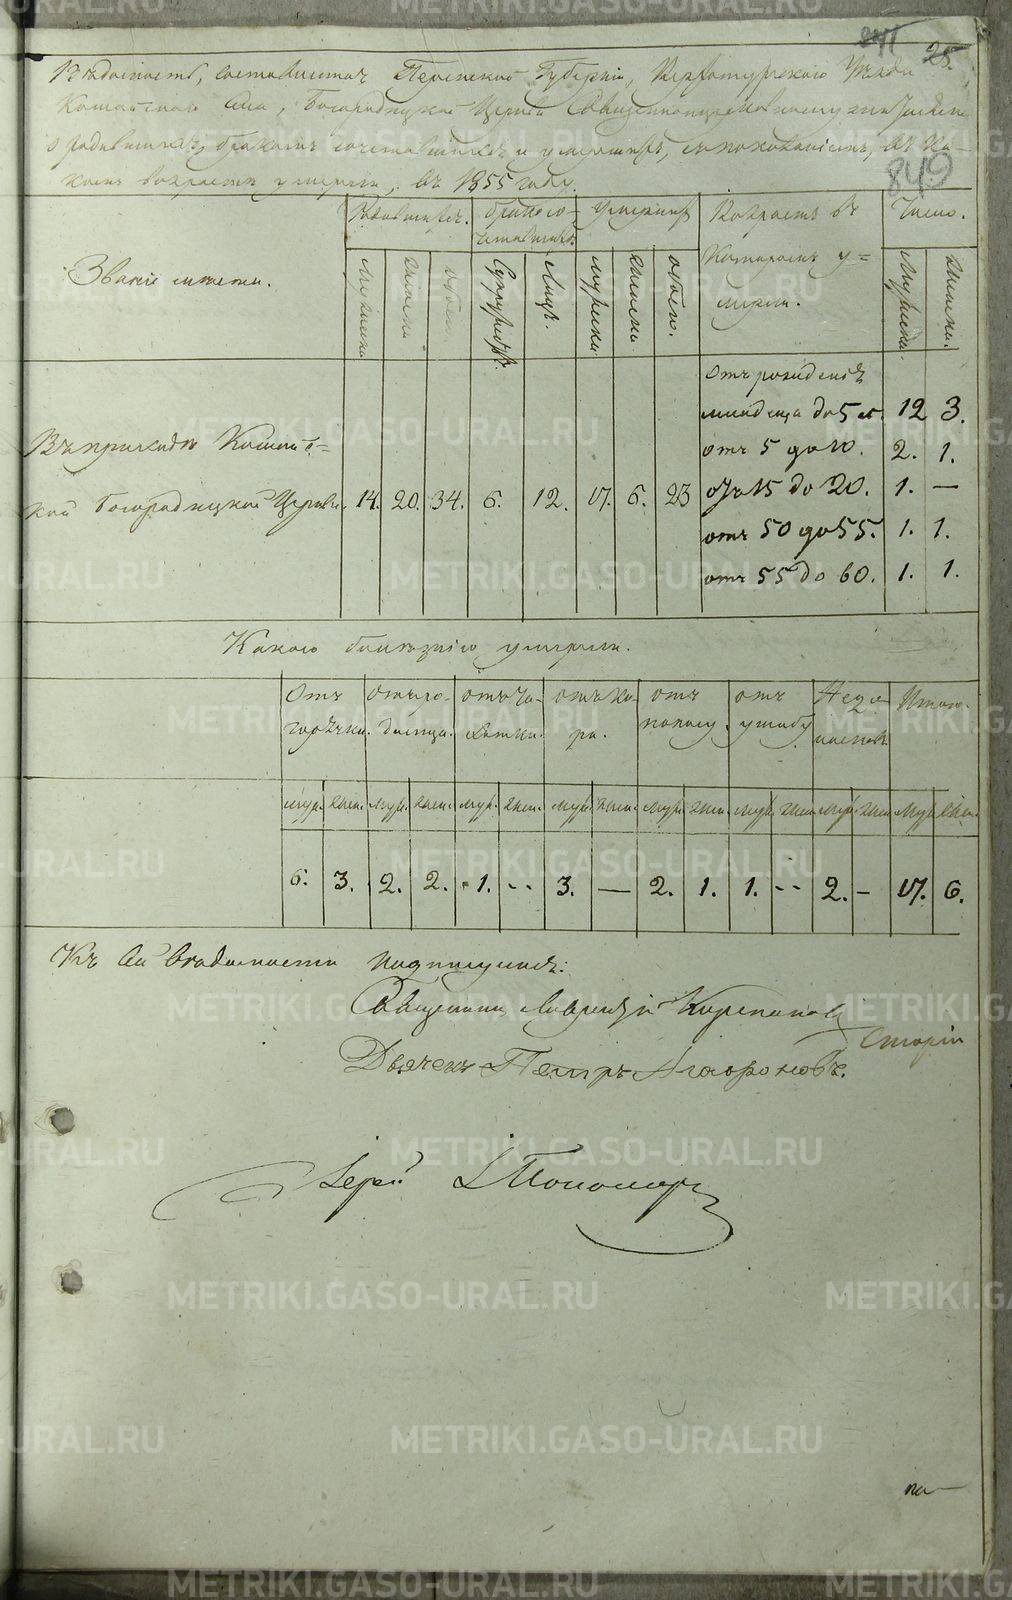 25.
849
Вѣдомость, составленная Пермской Губерніи, Верхотурскаго Уѣзда
Села, Богородицкой Церкви Священноцерковнослужителями
о родившихся, бракомъ сочетавшихся и умершихъ, съ показаніемъ, въ ка-
комъ возрастѣ умерли, въ 1855 году.
Званіе мѣста.
Родившихся.
бракосо-
четавшихся.
Умершихъ
Возрастъ въ
которомъ у=
мерли.
Число.
Мужеска
Женска
обоего
Супружествъ.
Лицъ.
мужеска
женска
обоего.
Мужеска.
Женска.
Отъ рожденія
младенца до 5 л. 12 3.
Въ приходѣ
отъ 5 до 10. 2. 1.
кой Богородицкой Церкви. 14. 20. 34. 6. 12. 17. 6. 23
отъ 15 до 20. 1. —
отъ 50 до 55. 1. 1.
отъ 55 до 60. 1. 1.
Какого болѣзнію умерли.
Отъ
горячки.
отъ ро-
димца.
отъ ча-
хотки.
отъ ко-
ра.
отъ
поносу
отъ
ушибу
Итого.
муж. жен. муж. жен. муж. жен. муж. жен. муж. жен. муж. жен. муж. жен. муж. жен.
6. 3. 2. 2. 1. -- 3. — 2. 1. 1. -- 2. — 17. 6.
Къ сей вѣдомости подписуемся:
Священникъ Лаврентій
Дьячекъ Петръ
Пономарь
METRIKI.GASO-URAL.RU